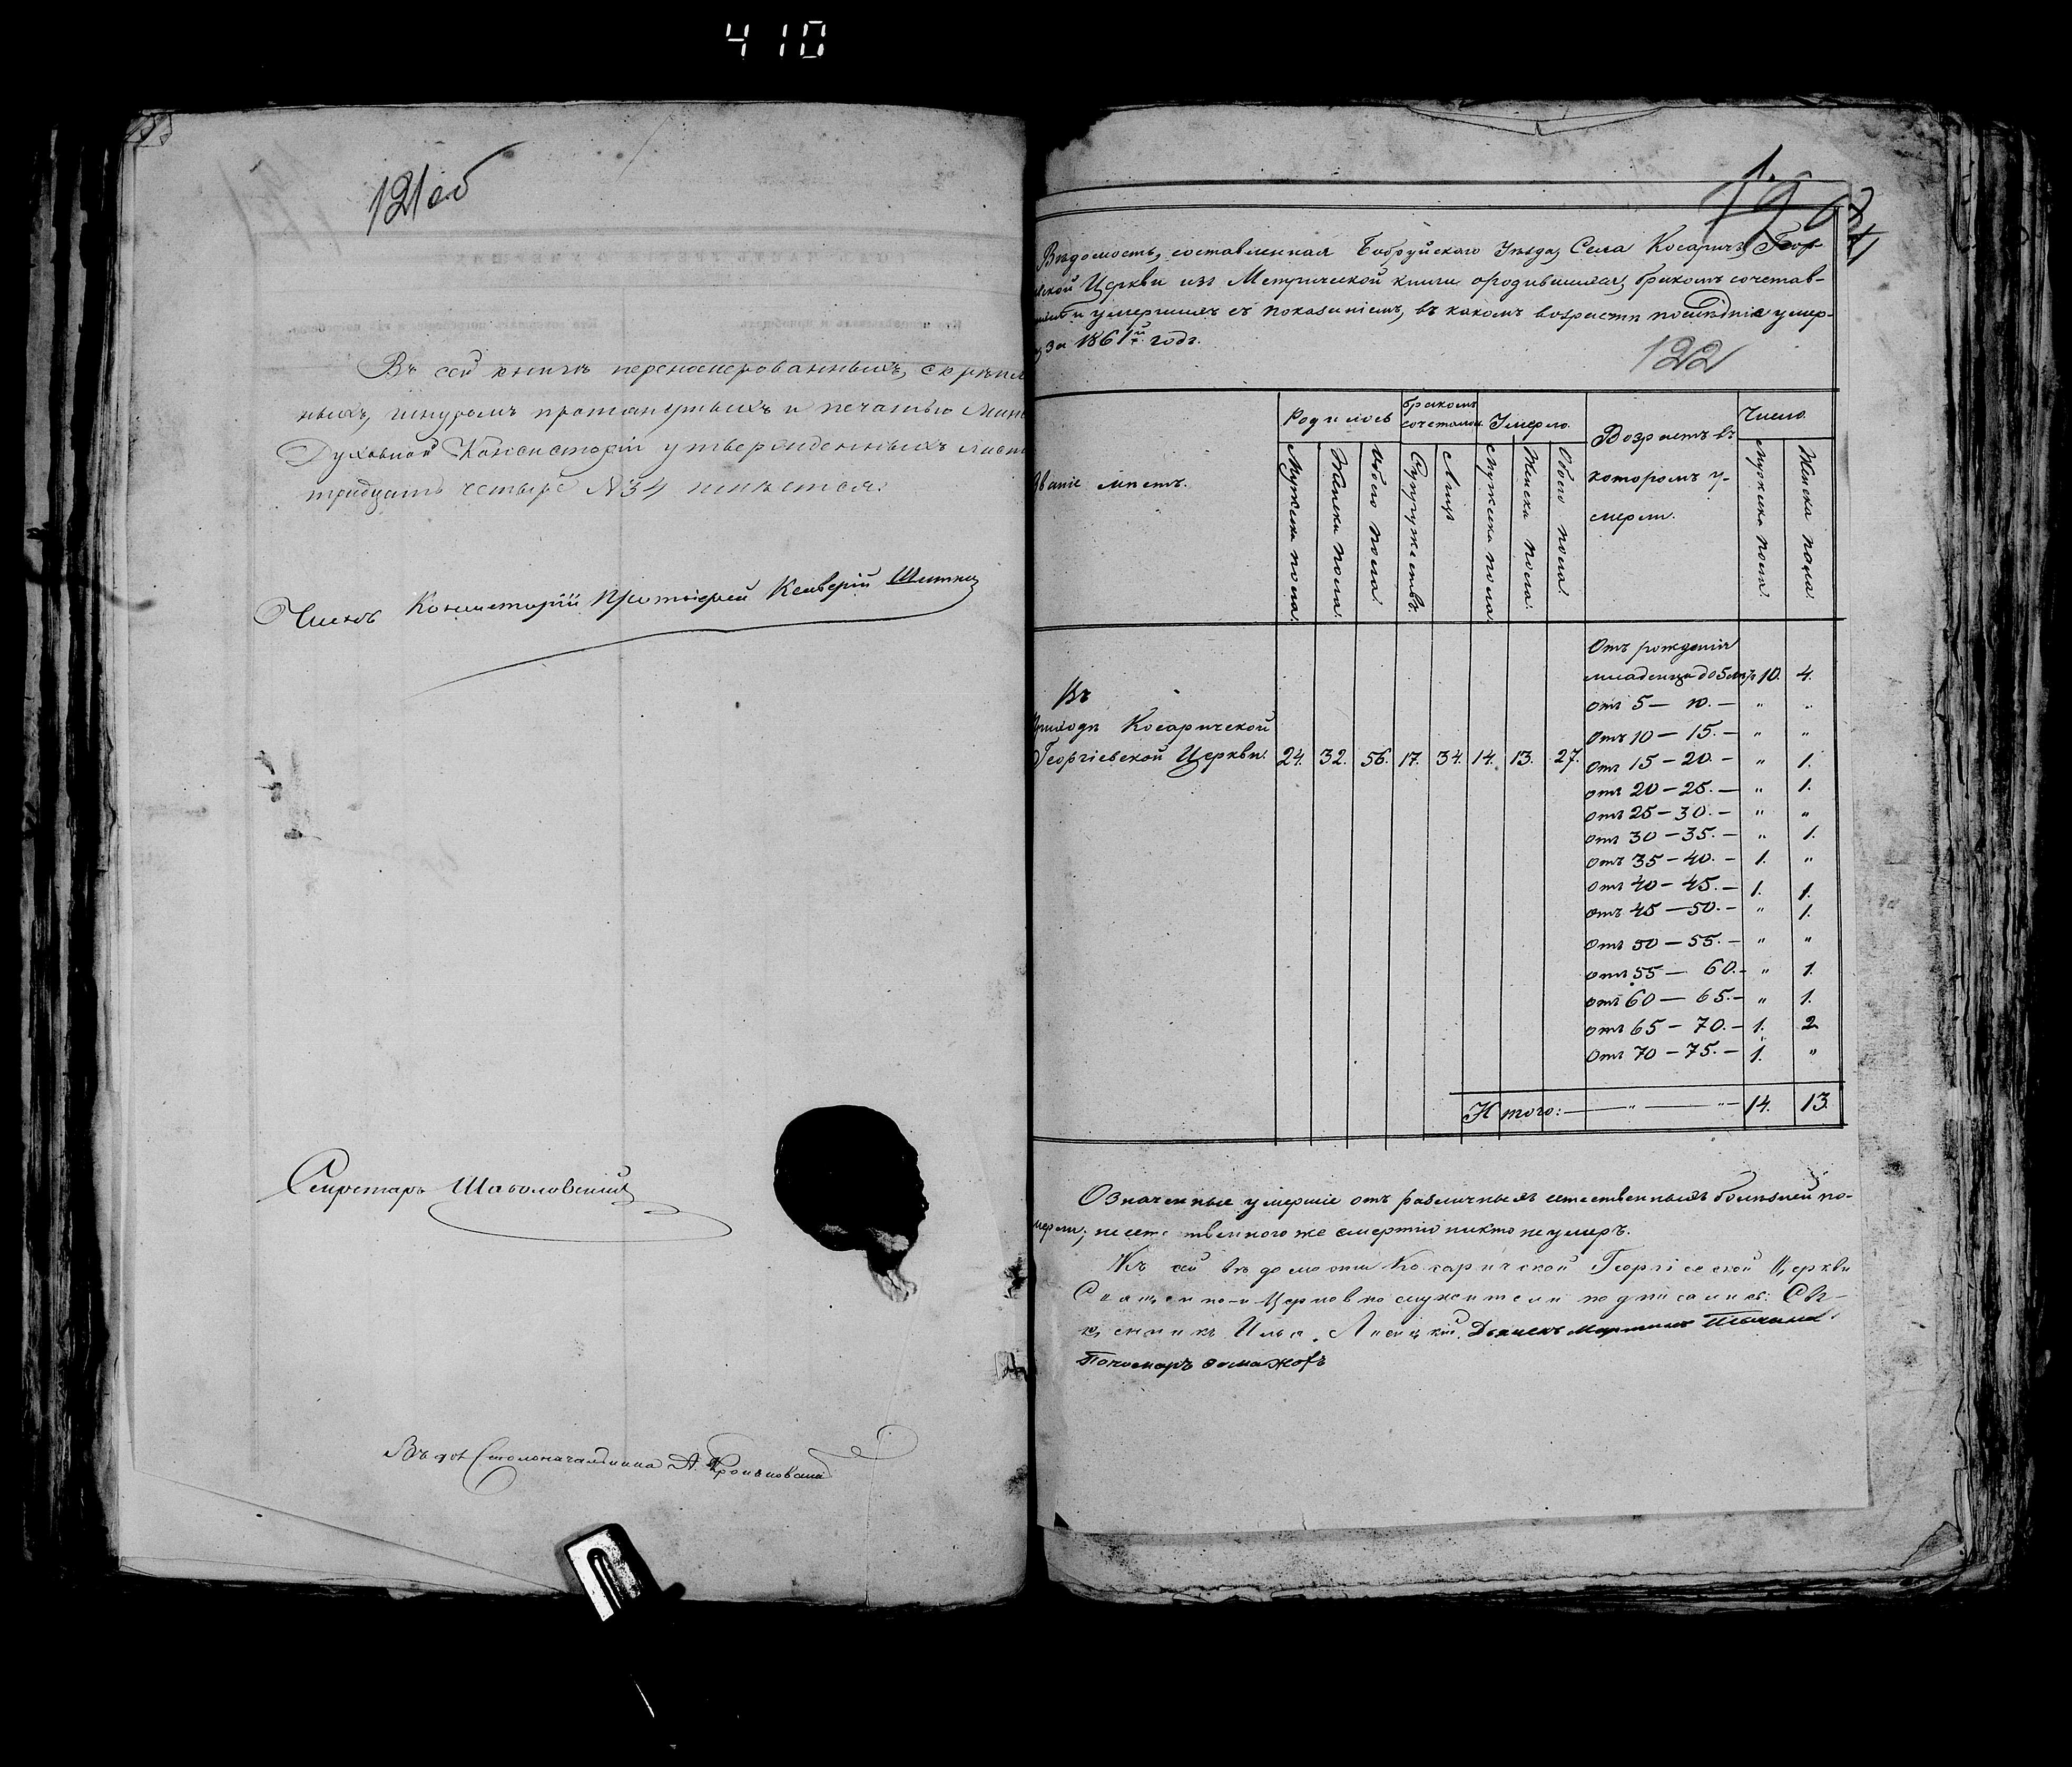 410
121 об
Въ сей книгѣ перенумерованныхъ, скрѣплен
ныхъ, шнуромъ протянутыхъ и печатью Минс
Духовной Консисторіи утвержденныхъ листо
тридцать четыре №34 имѣется.
Членъ Консисторіи Протоіерей
Секретарь
Столоначальника А.
Вѣдомость, составленная Бобруйскаго Уѣзда, Села Косаричъ Геор-
ской Церкви изъ Метрической книги о родившихся, бракомъ сочетав-
и умершихъ съ показаніемъ, въ какомъ возрастѣ послѣдніе умер-
за 1861й годъ.
122
званіе мѣстъ.
Родилось
Бракомъ сочеталось
Умерло.
Возрастъ въ
которомъ у-
мерли.
Число.
Мужеска пола.
Женска пола.
Обоего пола.
Супружествъ.
Лицъ
Мужеска пола
Женска пола.
Обоего пола.
Мужеска пола.
Женска пола.
Отъ рожденія
младенца до 5 лѣтъ 10. 4.
отъ 5 — 10. — " "
Отъ 10 — 15. — " "
Отъ 15 — 20. — " 1.
отъ 20 — 25. — " 1.
отъ 25 — 30. — " "
отъ 30 — 35. — " 1.
отъ 35 — 40. — 1. "
отъ 40 — 45. — 1. 1.
отъ 45 — 50. — " 1.
отъ 50 — 55. — " "
отъ 55 — 60. — " 1.
отъ 60 — 65. — " 1.
отъ 65 — 70. — 1. 2
отъ 70 — 75. — 1. "
Въ
приходѣ Косаричской
Георгіевской Церкви. 24. 32. 56. 17. 34. 14. 13. 27.
Итого: — " — " — 14. 13.
Означенные умершіе отъ различныхъ естественныхъ болѣзней по-
мерли; неестественною же смертію никто не умеръ.
Къ сей вѣдомости Косаричской Георгіевской Церкви
Священно-и Церковнослужители подписались: Свя-
щенникъ Илья Лисицкій. Дьячекъ Мартинъ
Пономарь